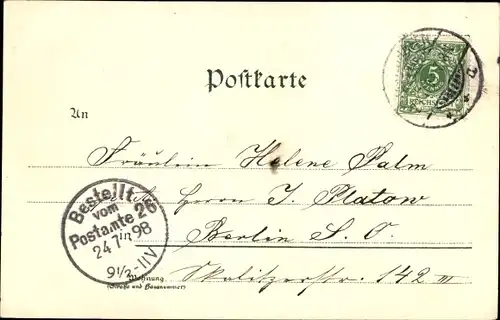 Postkarte
5
An
Fräulein Helene Palm
Herrn J. Platow
Berlin S. O.
Skalitzerstr. 142 III
Wohnung
(Straße und Hausnummer)
Bestellt
vom
Postamte 26
24 7/12 98
9 1/2-11V